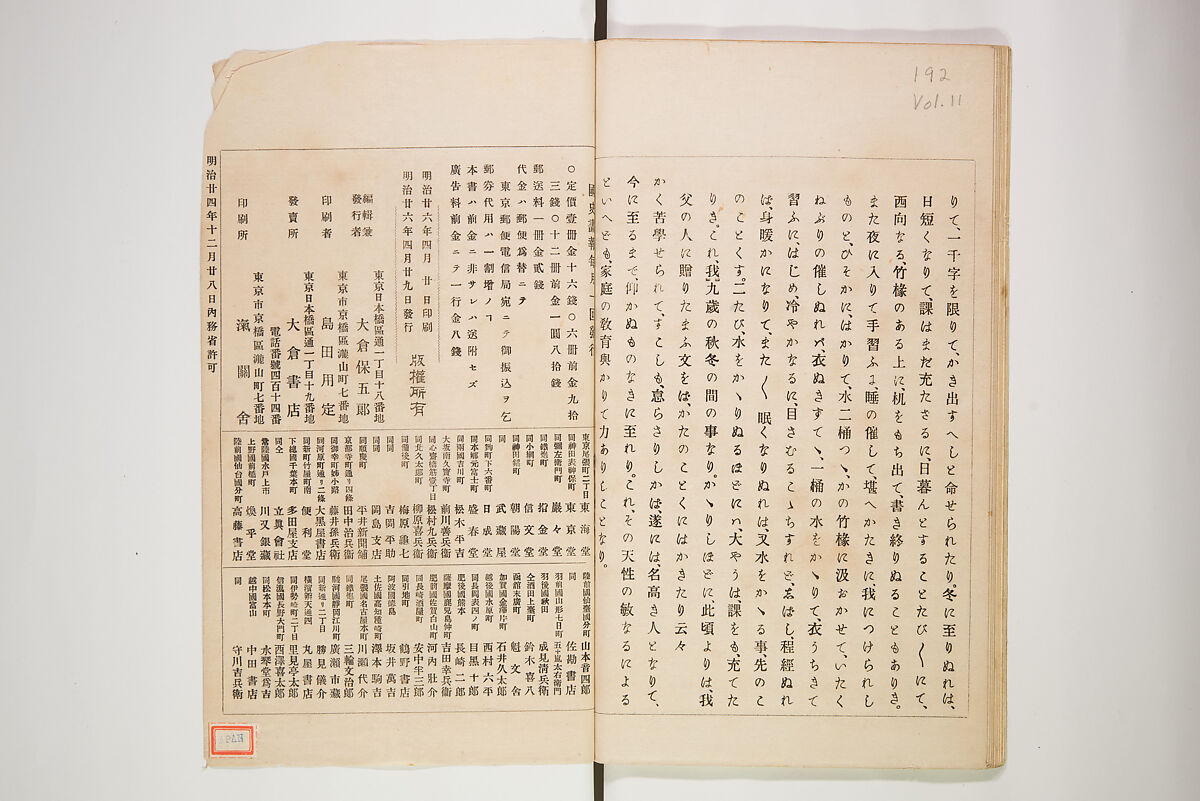 192
Vol. 11
りて、一千字を限りて、かき出すへしと命せられたり。冬に至りぬれは、
日短くなりて、課はまだ充たさるに、日暮んとすることたび〱にて、
西向なる、竹椽のある上に、机をもち出て、書き終りぬることもありき。
また夜に入りて手習ふに、睡の催して、堪へかたきに、我につけられし
ものと、ひそかに、はかりて、水二桶つゝ、かの竹椽に汲おかせて、いたく
ねぶりの催しぬれバ、衣ぬきすてゝ、一桶の水をかゝりて、衣うちきて
習ふに、はじめ、冷やかなるに、目さむるこゝちすれど、しばし、程經ぬれ
ば、身暖かになりて、また〱眠くなりぬれは、又水をかゝる事、先のこ
のことくす。二たび、水をかゝりぬるほどにハ、大やうは課をも、充てた
りき。これ、我、九歳の秋冬の間の事なり。かゝりしほどに此頃よりは、我
父の人に贈りたまふ文をば、かたのことくにはかきたり云々
かく苦學せられて、すこしも、怠らさりしかば、遂には、名高き人となりて、
今に至るまで、仰かぬものなきに至れり。これ、その天性の敏なるによる
といへども、家庭の敎育與かりて力ありしことなり。
國史畫報每月一回發行
○定價壹冊金十六錢○六冊前金九拾
三錢○十二冊前金一圓八拾錢
郵送料一冊金貳錢
代金ハ郵便爲替ニテ
東京郵便電信局宛ニテ御振込ヲ乞
郵券代用ハ一割增ノヿ
本書ハ前金ニ非サレハ送附セズ
廣告料前金ニテ一行金八錢
明治廿六年四月廿日印刷
明治廿六年四月廿九日發行
版權所有
東京日本橋區通一丁目十八番地
編輯兼發行者 大倉保五郎
東京市京橋區瀧山町七番地
印刷者 島田用定
東京日本橋區通一丁目十九番地
發賣所 大倉書店
電話番號四百十四番
東京市京橋區瀧山町七番地
印刷所 滊關舍
東京尾張町二丁目 東海堂
同神田表神保町 東京堂
同彌左衛門町 巖々堂
同鎗屋町 指金堂
同小網町 信文堂
同神田錦町 朝陽堂
同 武藏屋
同麴町下六番町 日成堂
同本鄕元富士町 盛春堂
同兩國吉川町 松木平吉
大坂南久寶寺町 前川善兵衛
同心齋橋筋壹丁目 松村九兵衛
同北久太郞町 柳原喜兵衛
同備後町 梅原龜七
同同 吉岡平助
同同 岡島支店
同順慶町 平井新聞舖
京都寺町通り四條 田中治兵衛
同御幸町姉小路 藤井孫兵衛
同河原町通り二條 大黑屋書店
同新町竹屋町南 便利堂
下總國千葉本町 多田屋支店
同仝 立眞會社
常陸國水戶上市 川又銀藏
上野國前橋町 煥乎堂
陸前國仙台國分町 高藤書店
陸前國仙臺國分町 山本音四郞
同 佐勘書店
羽前國山形七日町 五十嵐太右衛門
羽後國秋田 成見淸兵衛
仝酒田上臺町 鈴木喜八
函館末廣町 魁文舍
加賀國金澤片町 石井久太郞
越後國水原町 西村六平
同長岡表四ノ町 目黑十郞
肥後國熊本 長崎二郞
薩摩國鹿兒島仲町 吉田幸兵衛
肥前國佐賀白山町 河內莊介
同長崎酒屋町 安中半三郞
同引地町 鶴野書店
阿波國德島 坂井萬吉
土佐國高知種崎町 澤本駒吉
尾張國名古屋本町 川瀨代介
同鐵砲町 三輪文治郞
駿河國靜岡江川町 廣瀨市藏
同新通り二丁目 勝見儀介
橫濱辨天通四 丸屋書店
同伊勢崎町二丁目 里見亭太郞
信濃國長野大門町 西澤喜太郞
同松本本町 水琴堂爲吉
越中國富山 中田書店
同 守川吉兵衛
明治廿四年十二月廿八日內務省許可